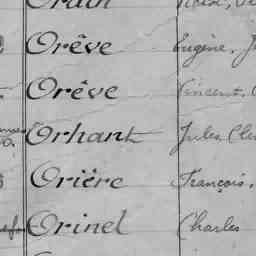 Orève Eugène, J
Orève Vincent,
Orhant Jules Cle
Orière François,
Orinel Charles